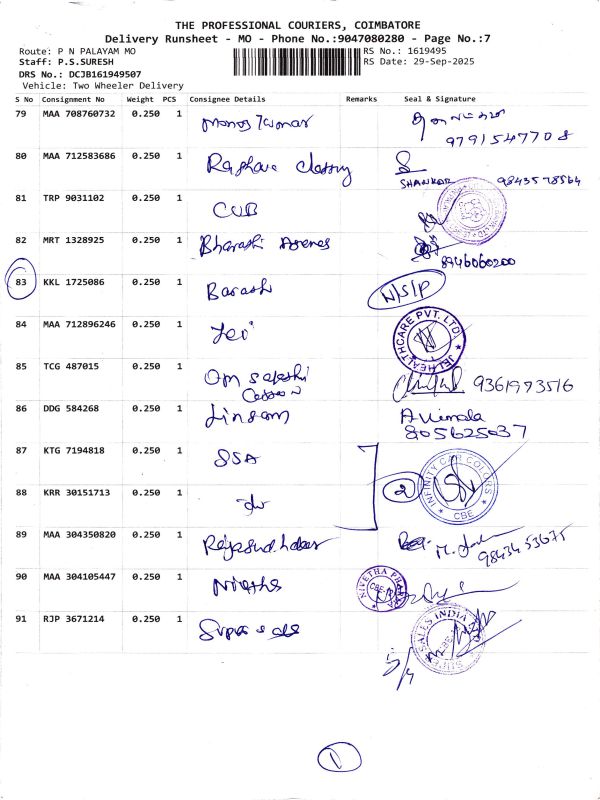 THE PROFESSIONAL COURIERS, COIMBATORE
Delivery Runsheet - MO - Phone No.:9047080280 - Page No.:7
Route: P N PALAYAM MO RS No.: 1619495
Staff: P.S.SURESH RS Date: 29-Sep-2025
DRS No.: DCJB161949507
Vehicle: Two Wheeler Delivery
S No Consignment No Weight PCS Consignee Details Remarks Seal & Signature
79 MAA 708760732 0.250 1 Manoj Kumar
9791547708
80 MAA 712583686 0.250 1 Raghava
SHANKAR 9843578564
81 TRP 9031102 0.250 1 CUB
82 MRT 1328925 0.250 1 Bharashi
8946060200
83 KKL 1725086 0.250 1 Barash N/S/P
84 MAA 712896246 0.250 1 Jei JEI HEALTHCARE PVT. LTD
85 TCG 487015 0.250 1 Om sakshi 9361973516
86 DDG 584268 0.250 1 Lingam A Vimala
805625037
87 KTG 7194818 0.250 1 SSA INFINITY CAR COLOURS CBE
2
88 KRR 30151713 0.250 1 do
89 MAA 304350820 0.250 1 9843453675
90 MAA 304105447 0.250 1 Nivetha NIVETHA CBE
91 RJP 3671214 0.250 1 Supra sales SALES INDIA
1